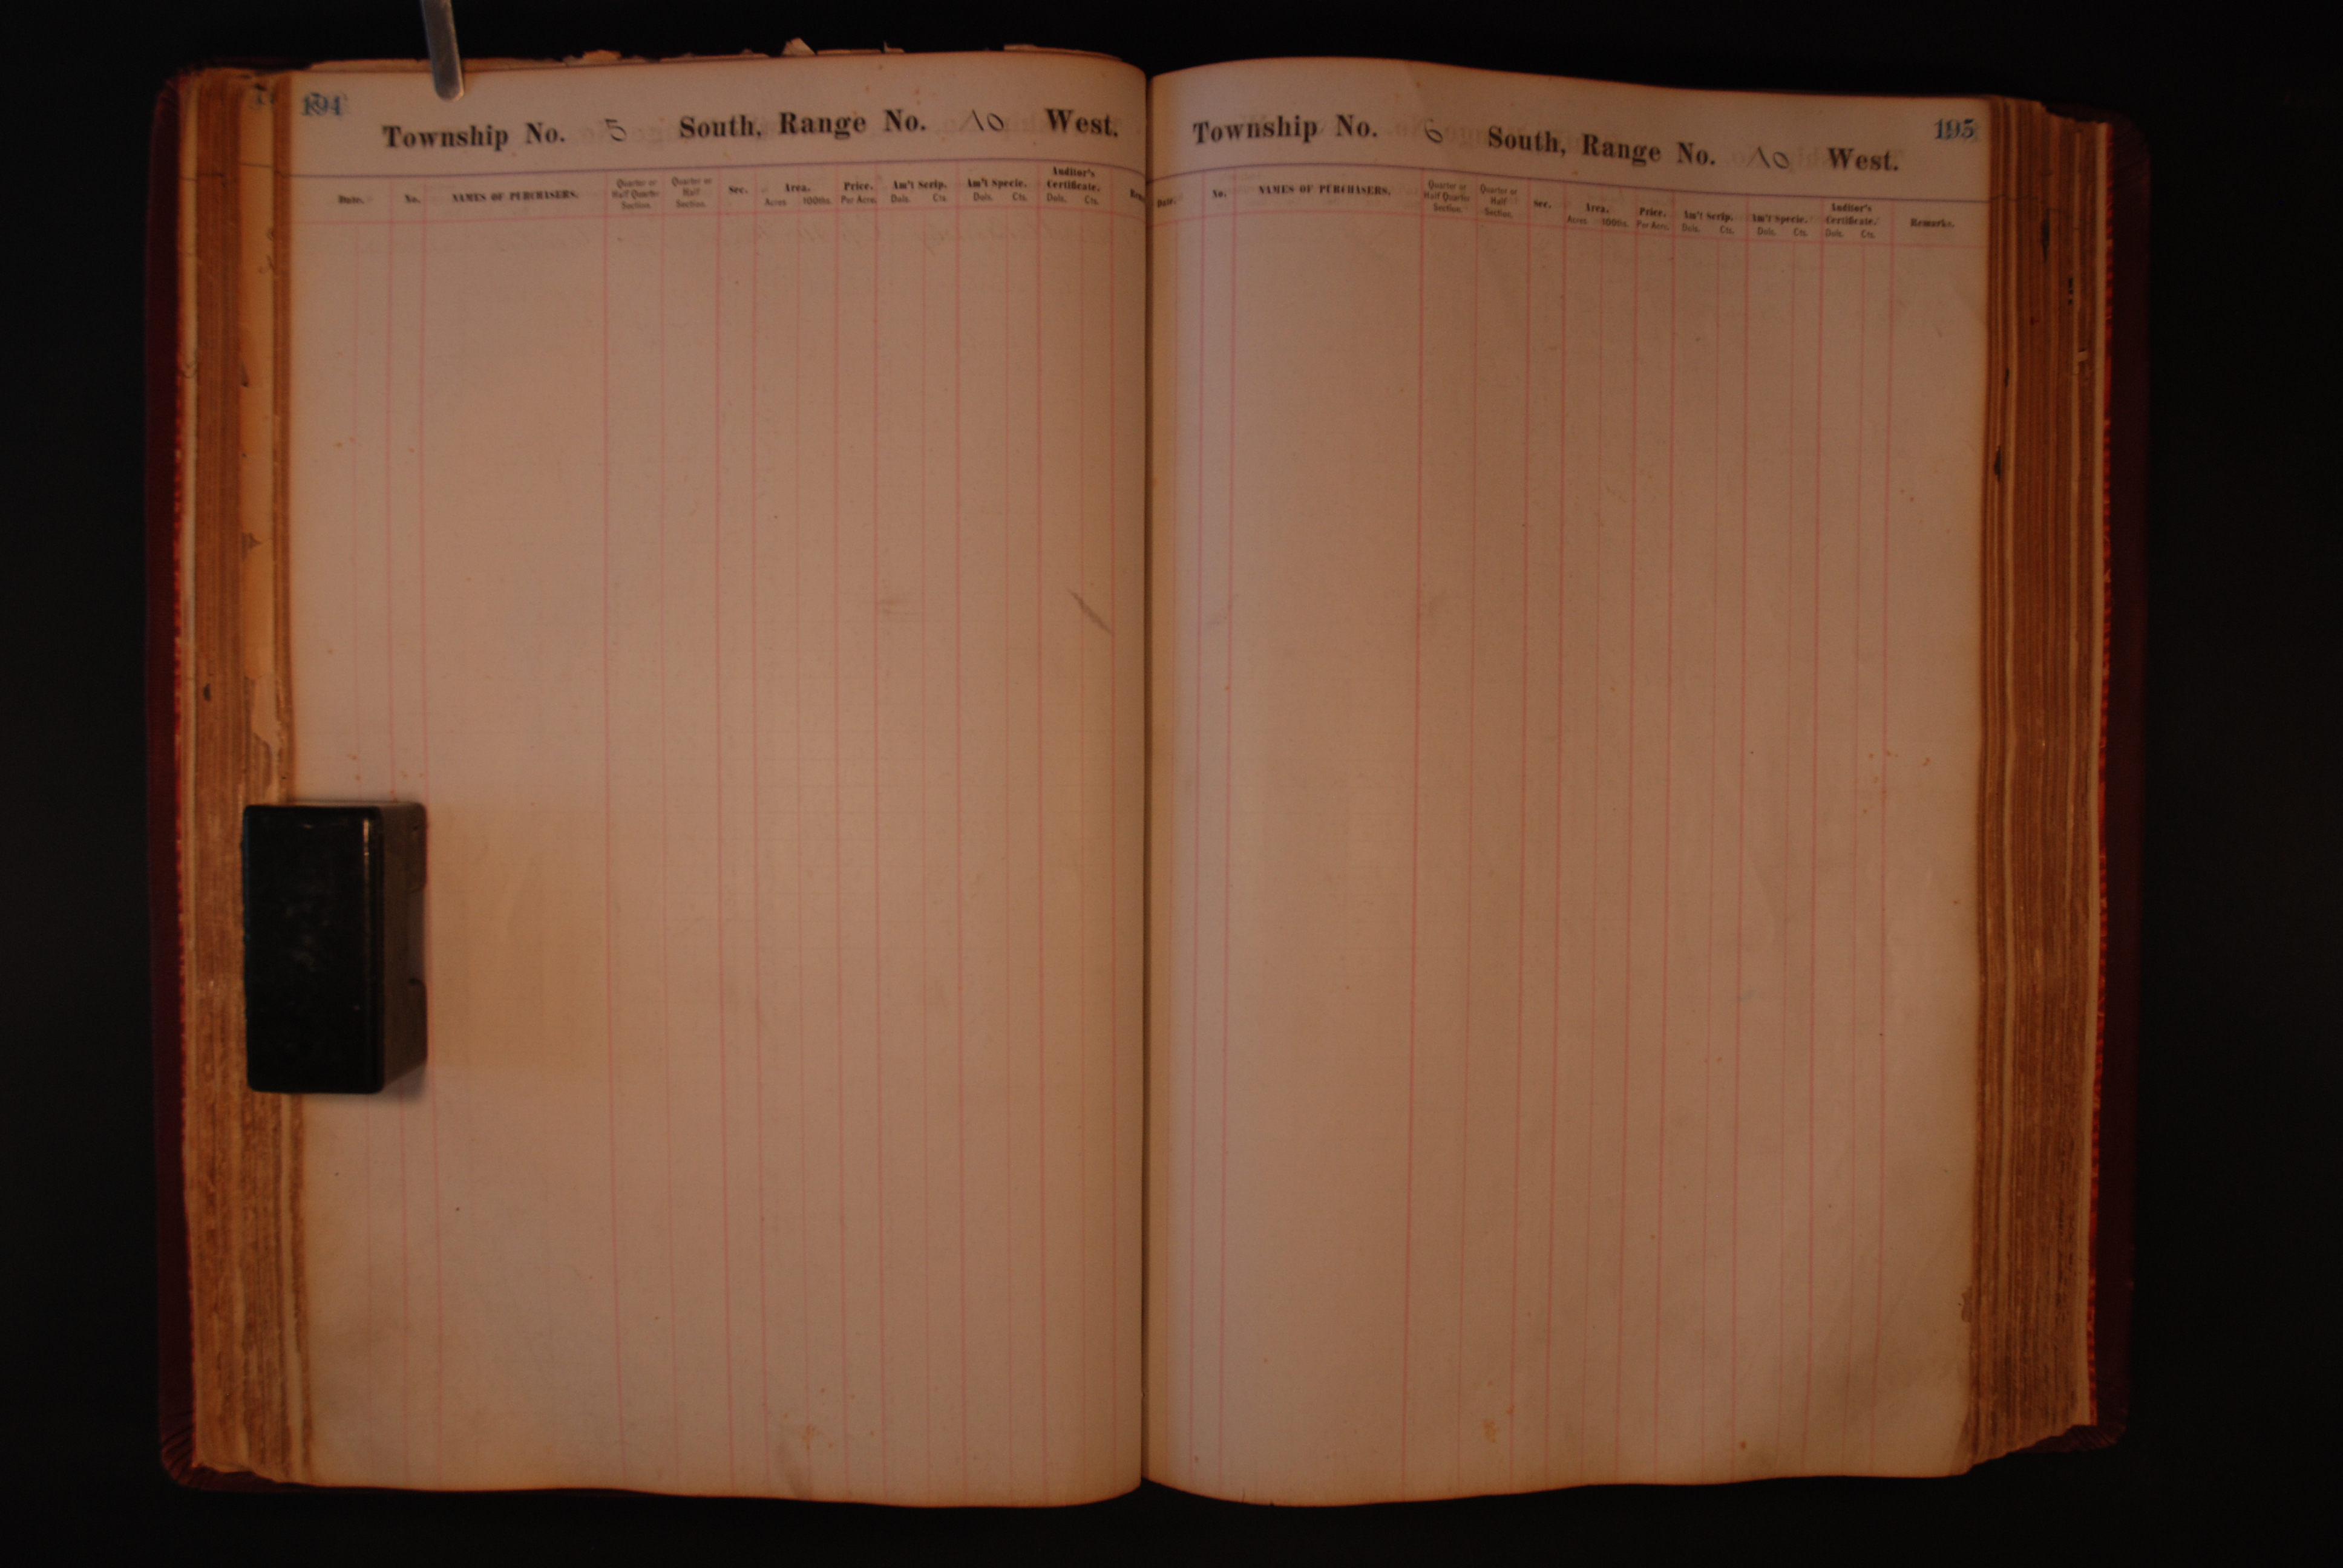 194
Township No. 5 South, Range No. 10 West.
Date. No. NAMES OF PURCHASERS. Quarter or Half Quarter Section. Quarter or Half Section. Sec. Area. Acres 100ths. Price. Per Acre. Am't Scrip. Dols. Cts. Am't Specie. Dols. Cts. Auditor's Certificate. Dols. Cts.
195
Township No. 6 South, Range No. 10 West.
Date. No. NAMES OF PURCHASERS. Quarter or Half Quarter Section. Quarter or Half Section. Sec. Area. Acres 100ths. Price. Per Acre. Am't Scrip. Dols. Cts. Am't Specie. Dols. Cts. Auditor's Certificate. Dols. Cts. Remarks.